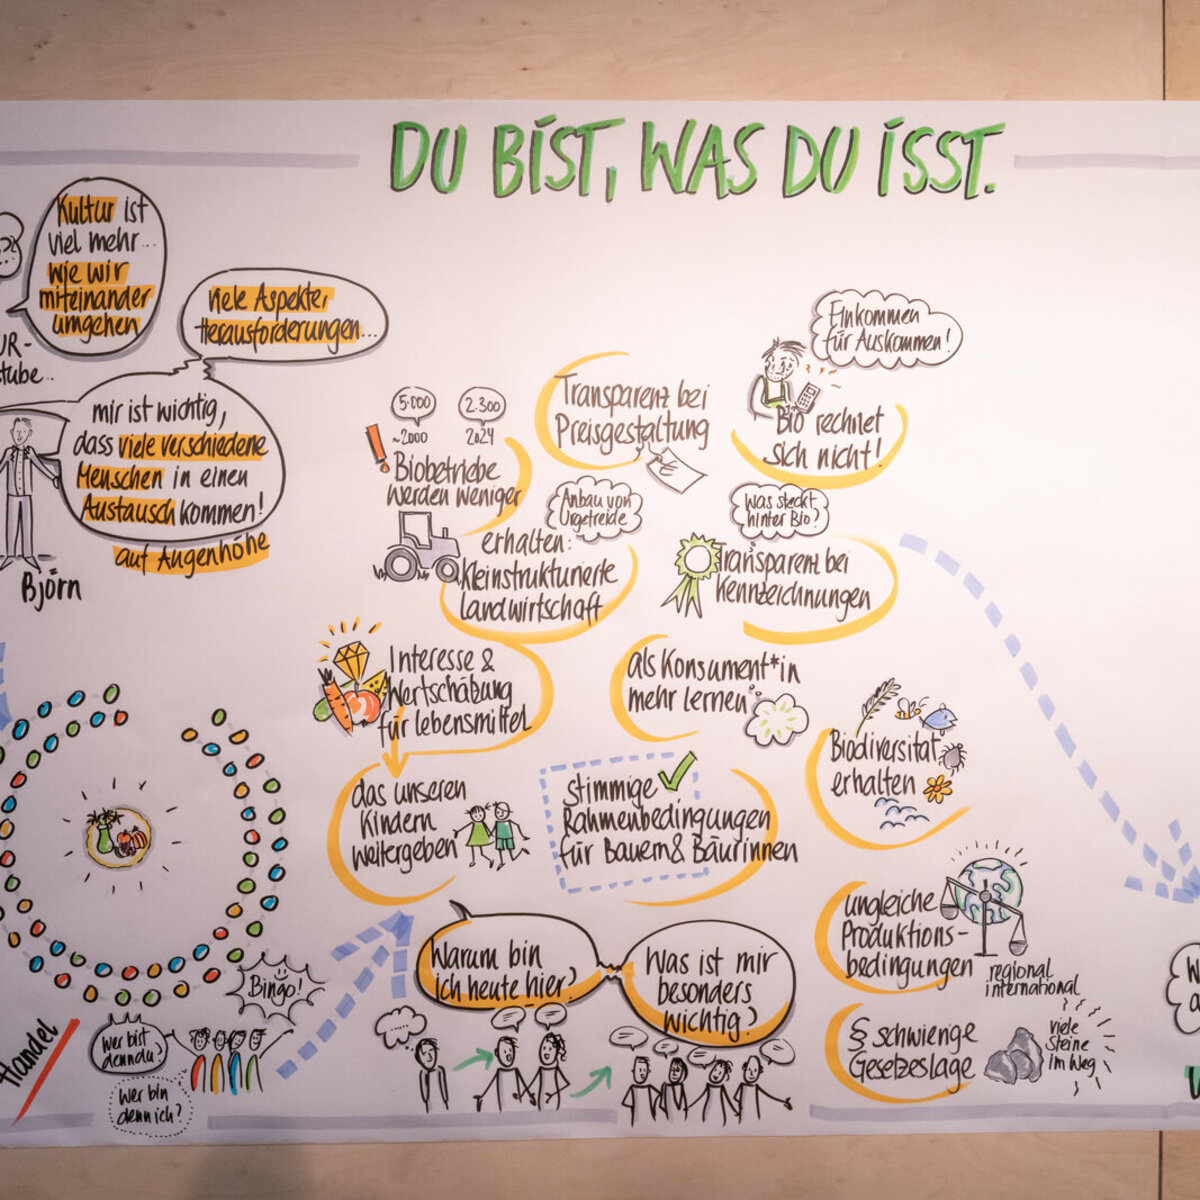 DU BIST, WAS DU ISST.
Kultur ist
viel mehr...
wie wir
miteinander
umgehen
viele Aspekte,
Herausforderungen...
UR-
tube..
mir ist wichtig,
dass viele verschiedene
Menschen in einen
Austausch kommen!
auf Augenhöhe
Björn
Einkommen
für Auskommen!
Bio rechnet
sich nicht!
Transparenz bei
Preisgestaltung
€
5.000
2.300
~2000
2024
Biobetriebe
werden weniger
Anbau von
Urgetreide
erhalten:
Kleinstrukturierte
Landwirtschaft
Was steckt
hinter Bio?
Transparenz bei
Kennzeichnungen
Interesse &
Wertschätzung
für Lebensmittel
als Konsument*in
mehr lernen
Biodiversität
erhalten
das unseren
Kindern
weitergeben
stimmige
Rahmenbedingungen
für Bauern & Bäurinnen
ungleiche
Produktions-
bedingungen
regional
international
Warum bin
ich heute hier?
Was ist mir
besonders
wichtig?
§ schwierige
Gesetzeslage
viele
Steine
im Weg
Bingo!
Handel
Wer bist
denn du?
Wer bin
denn ich?